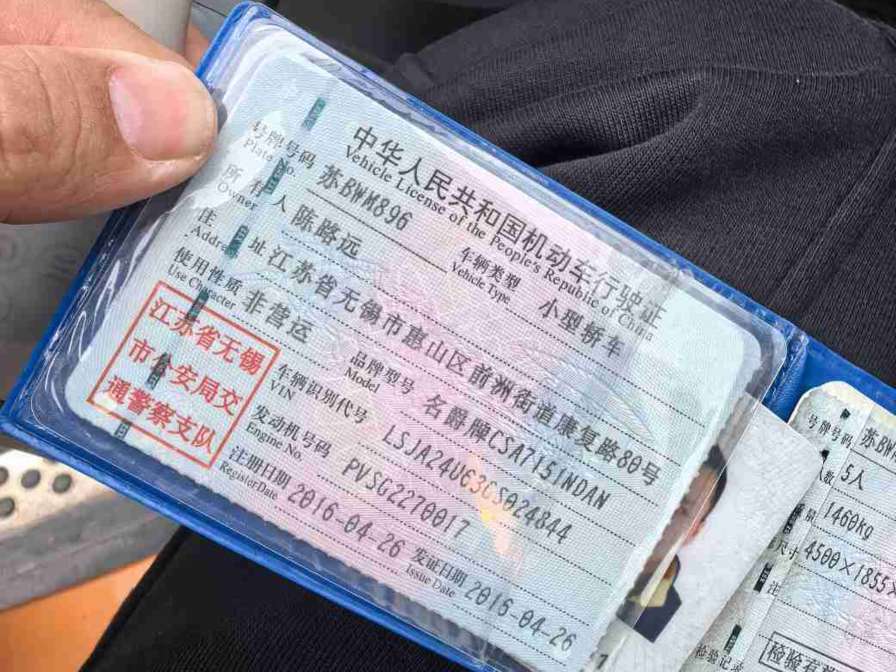 中华人民共和国机动车行驶证
Vehicle License of the People's Republic of China
号牌号码 苏BWM896 车辆类型 小型轿车
Plate No. Vehicle Type
所有人 陈路远
Owner
住址 江苏省无锡市惠山区前洲街道康复路80号
Address
使用性质 非营运 品牌型号 名爵牌CSA7151NDAN
Use Character Model
江苏省无锡
市公安局交
通警察支队
车辆识别代号 LSJA24U63GS024844
VIN
发动机号码 PVSG2270017
Engine No.
注册日期 2016-04-26 发证日期 2016-04-26
Register Date Issue Date
号牌号码 苏BW
人数 5人
1460kg
尺寸 4500×1855×
检验记录
检验有